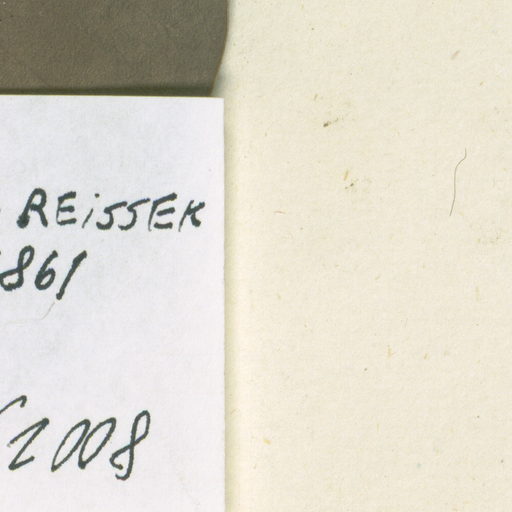 REISSEK
861
2008